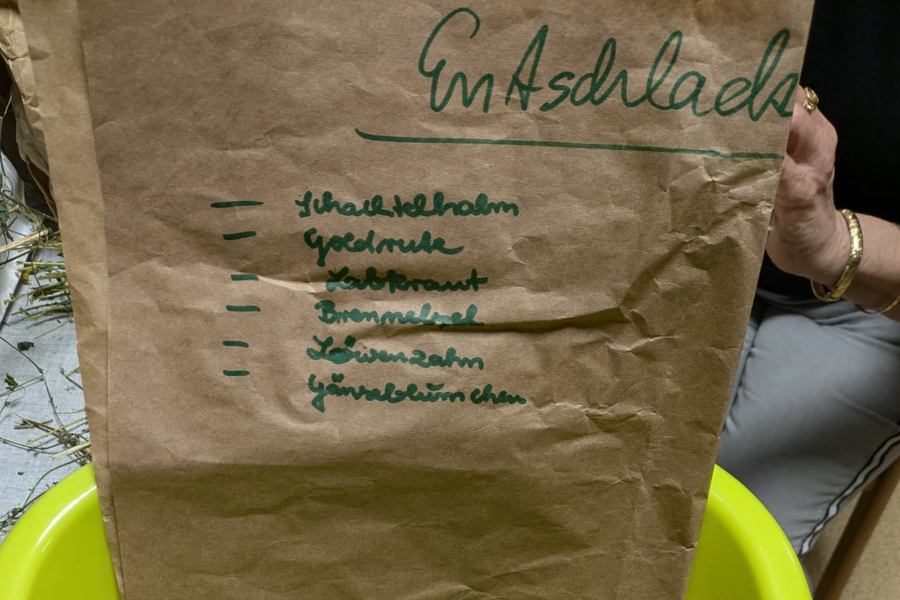 EntAschlack
- Schachtelhalm
- Goldrute
- Labkraut
- Brennnessel
- Löwenzahn
- Gänseblümchen